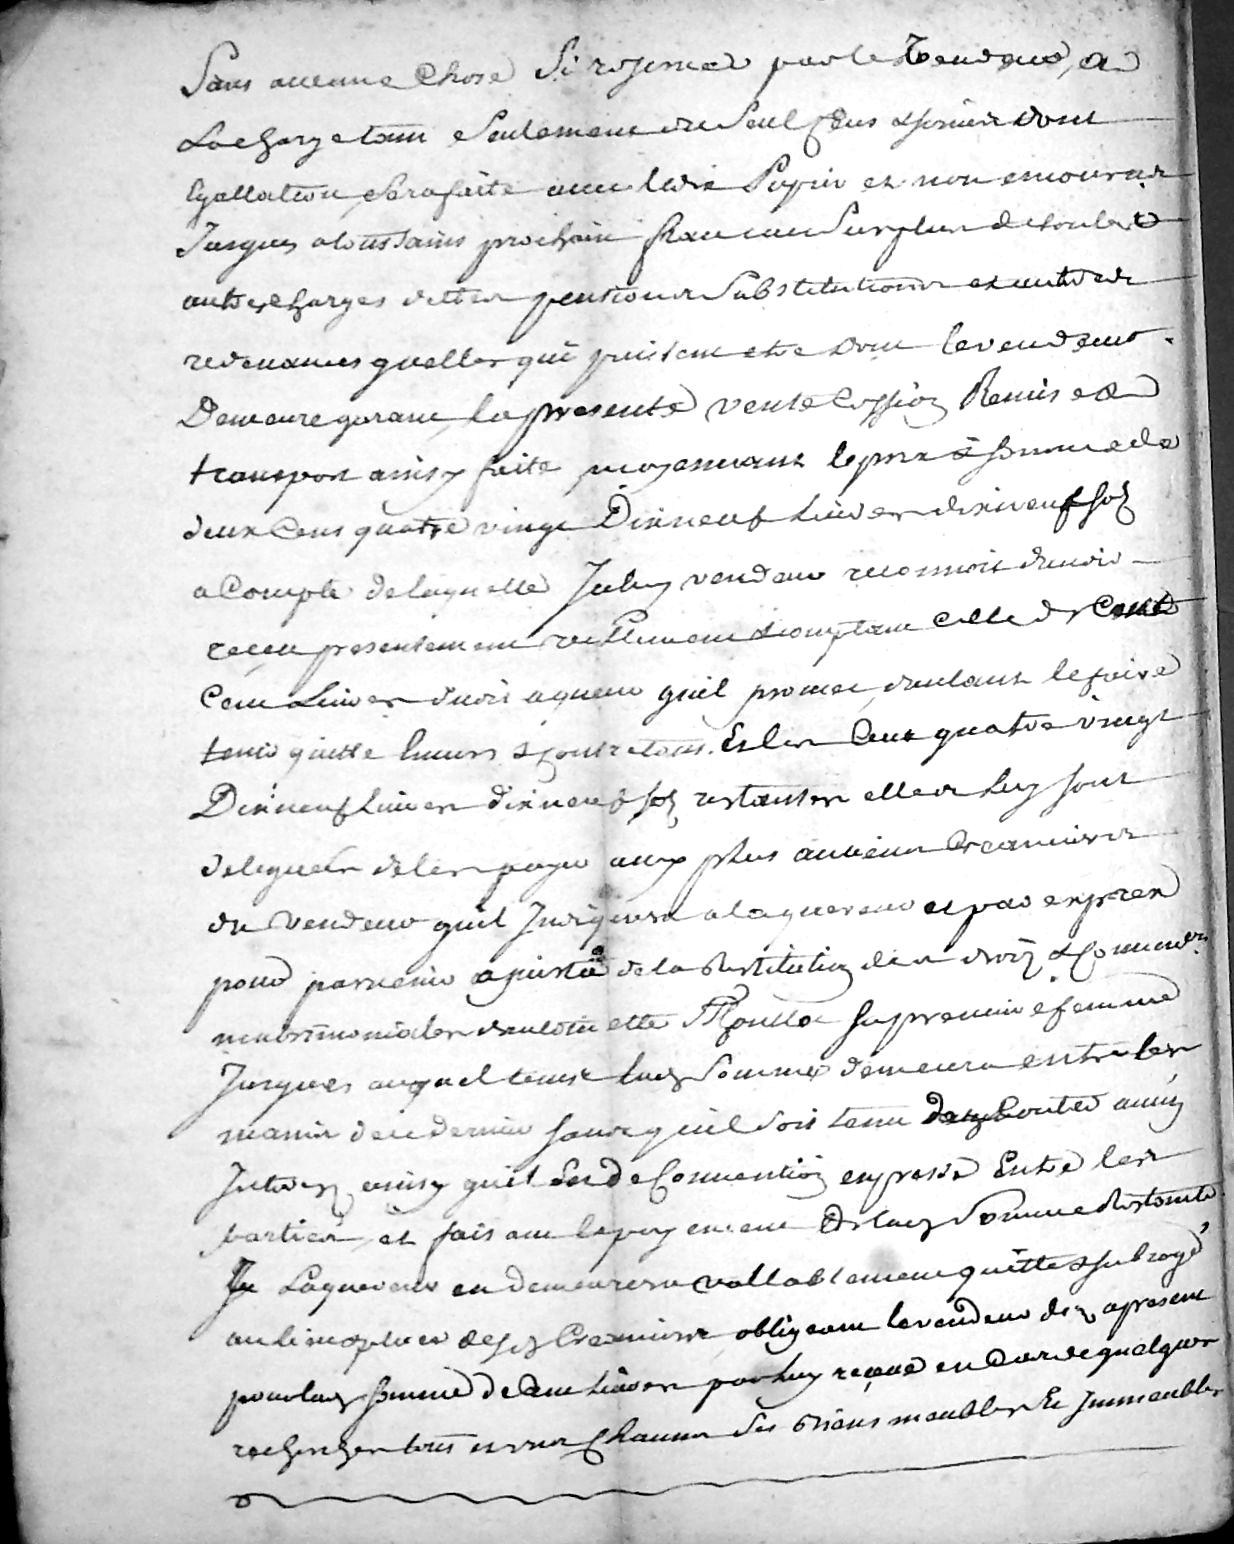 Sans aucune Chose Si reserver par le Vendeur, a
La charge tant Seulement du Seul Cens & foncier dont
Egallation Sera faite avec led. Papin et non encourus
Jusques a toussains prochain franc au Surplus de toutes
autres Charges dettes pentions Substitutions et autres
redevances quelles qui puissent etre dont le vendeur
Demeure garant, la presente vente Cession Remise &
transport ainsy faite moyennant le prix & Somme de
deux Cens quatre vingt Dixneuf Livres dixneuf sols
a Compte de laquelle Iceluy vendeur reconnoit d'avoir
receu presentement reellement & comptant Celle de Cent
Cent Livres dudit aquereur quil promet d'autant le faire
tenir quitte Envers & contre tous. Et les Cent quatre vingt
Dixneuf Livres dixneuf sols restantes elles luy sont
deleguées de les payer aux plus anciens Creanciers
du Vendeur quil Indiquera a laquereur et par exprez
pour parvenir a partie de la Restitution des droits &
matrimoniales d'antoinette sa premiere femme
Jusques auquel temps lad. Somme demeura entre les
mains de ce dernier sans quil soit tenu den Compter aucuns
Interetz ainsy quil Est de Convention expresse Entre les
parties, et faisant le payement de lad. Somme Restante
Laquereur en demeurera vallablement quitte & Subrogé
au lieu & place desd. Creanciers obligeant le vendeur dez apresent
pour lad. Somme de Cent Livres par luy reçeue en Cas de quelques
recherches tous et uns Chacuns Ses Biens meubles Et Immeubles